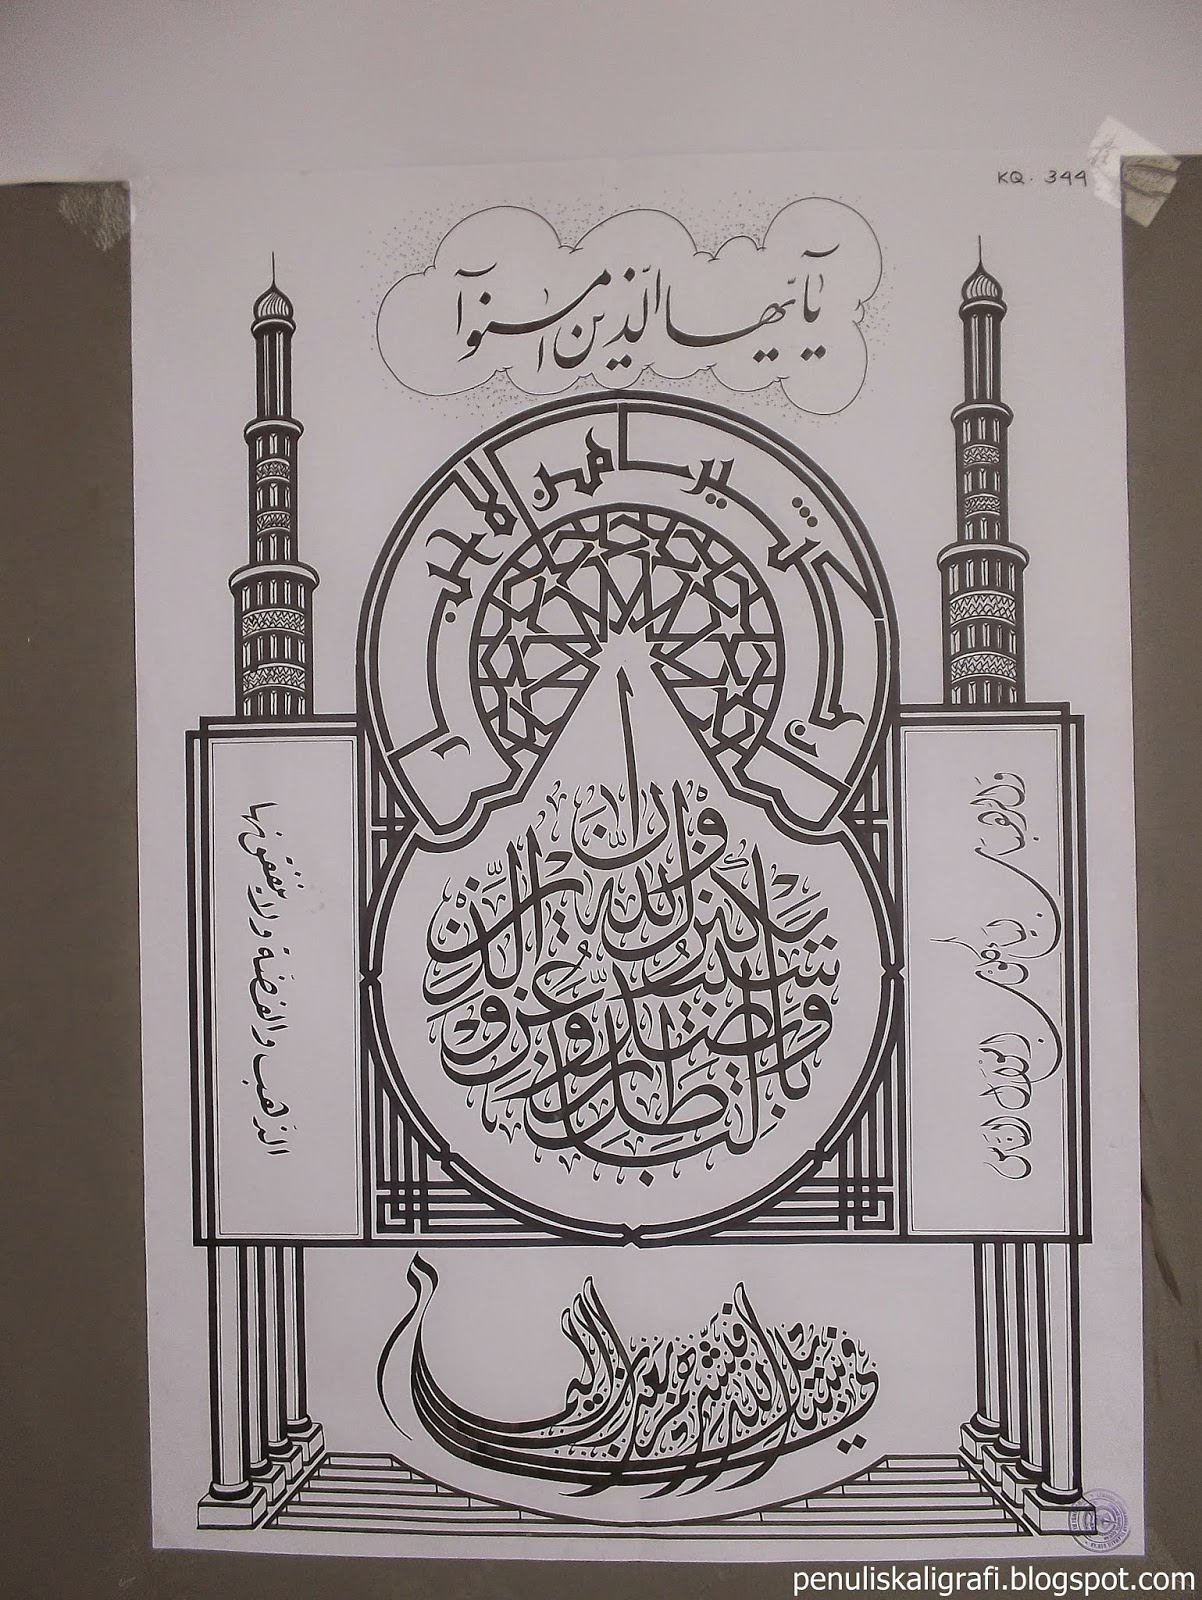 KQ. 344
يٰٓأَيُّهَا الَّذِينَ اٰمَنُوٓا
إن كثيرا من الاحبار
والرهبان ليأكلون اموال الناس
بالباطل ويصدون عن سبيل الله والذين يكنزون
الذهب والفضة ولا ينفقونها
في سبيل الله فبشرهم بعذاب اليم
penuliskaligrafi.blogspot.com